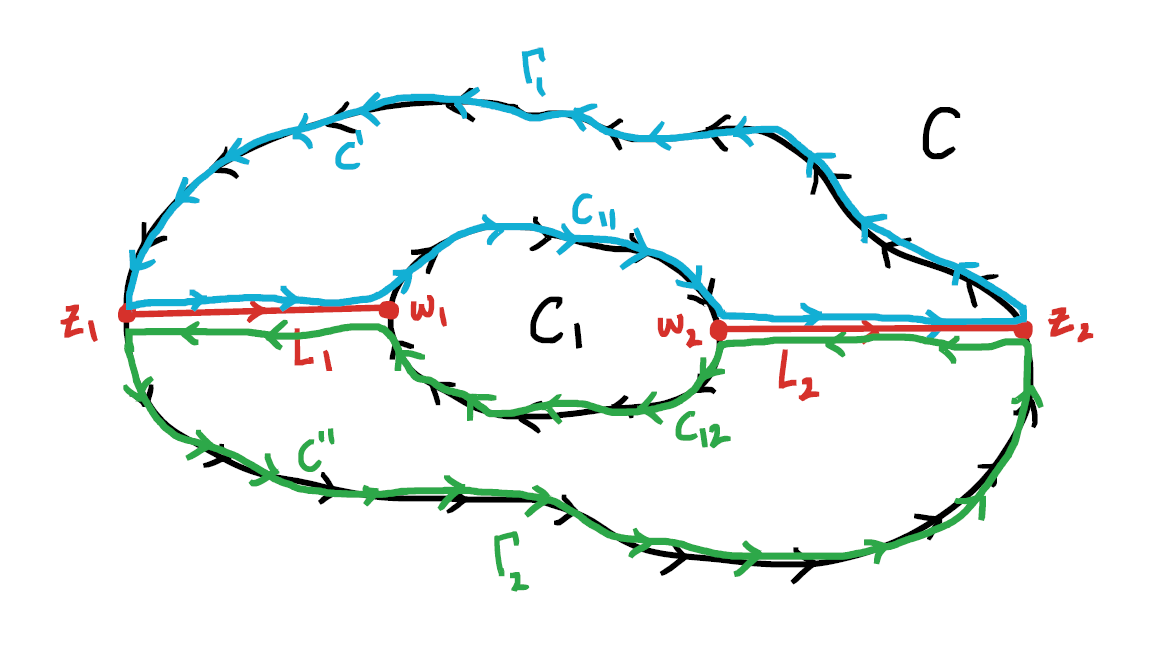 Γ₁
C
C'
C₁₁
z₁
w₁
C₁
w₂
z₂
L₁
L₂
C₁₂
C''
Γ₂